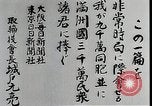 この一篇を
非常時局に際會する
我が九千萬同胞並に
滿洲國三千萬民衆
諸君に捧ぐ
大阪毎日新聞社
東京日日新聞社
取締役會長 城戸元亮